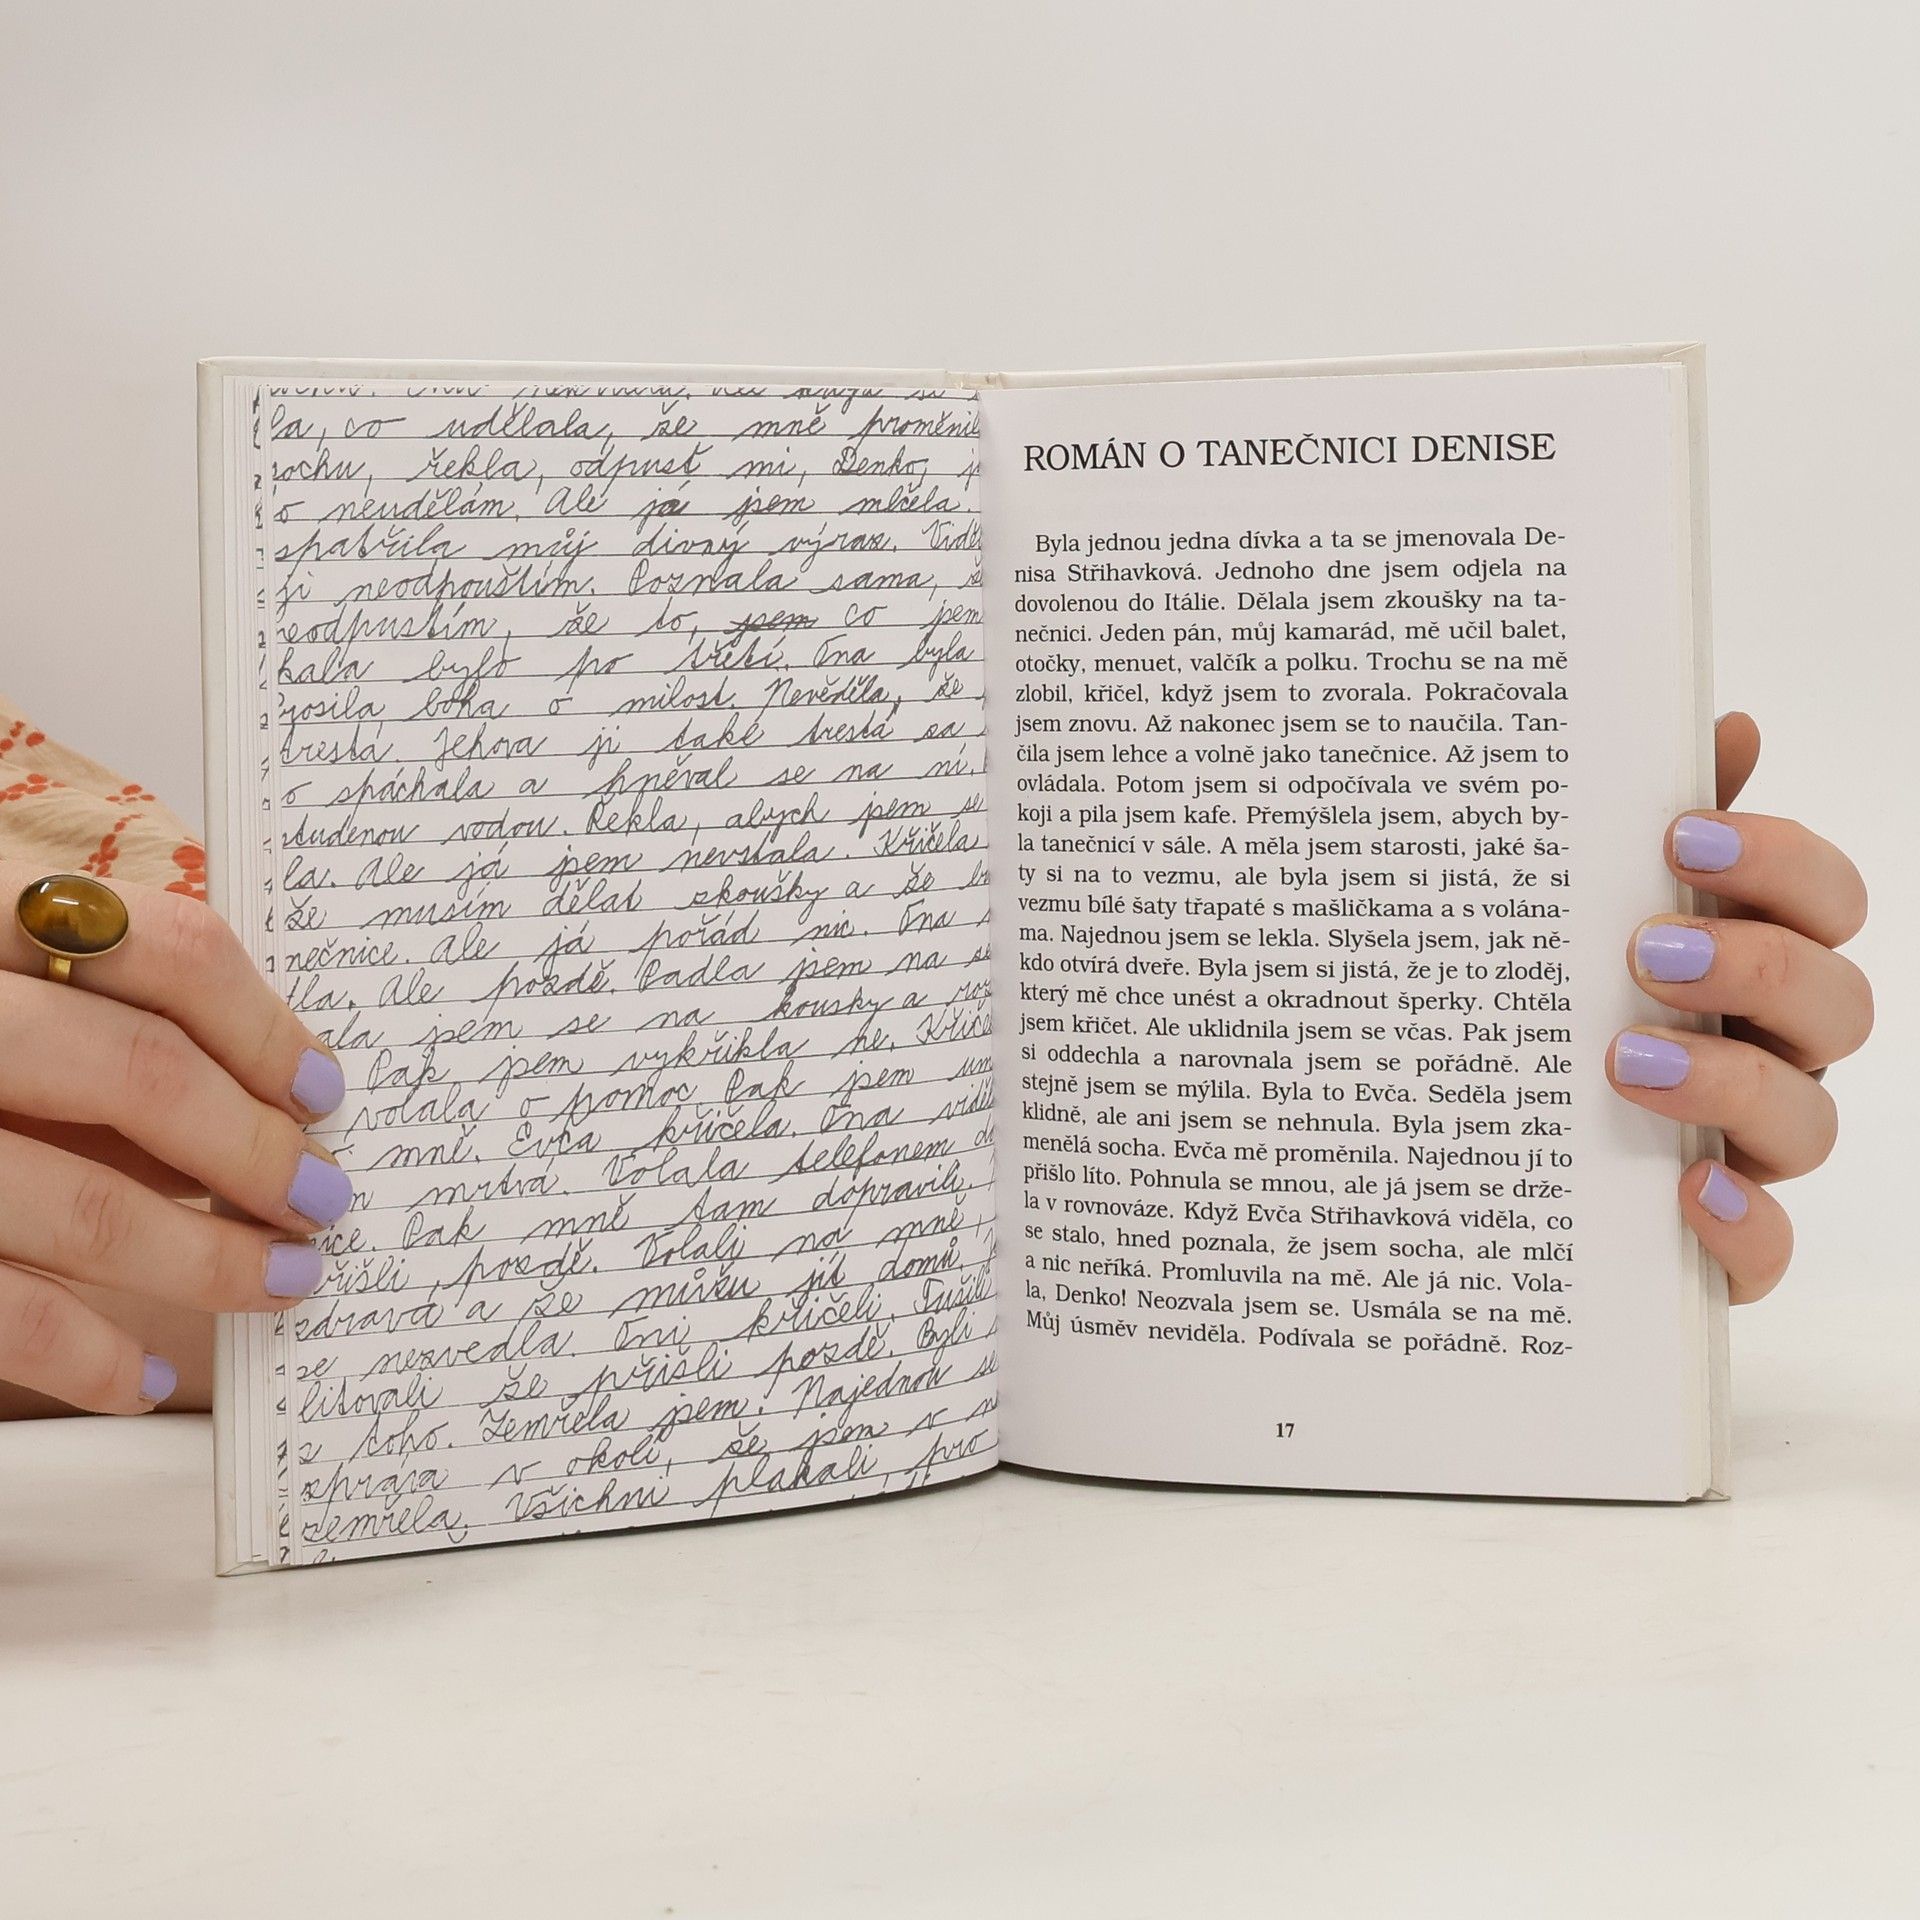 la, co udělala, že mně proměnil
sochu, řekla, odpusť mi, Denko, j
o neudělám. Ale já jsem mlčela.
spatřila můj divný výraz. Vidě
ji neodpouštím. Poznala sama, ž
neodpustím, že to, jsem co jsem
kala bylo po třetí. Ona byla
prosila boha o milost. Nevěděla, že
trestá. Jehova ji také trestá za
o spáchala a hněval se na ní.
studenou vodou. Řekla, abych jsem se
la. Ale já jsem nevstala. Křičela
že musím dělat zkoušky a že b
nečnice. Ale já pořád nic. Ona
tla. Ale pozdě. Padla jem na ze
ala jsem se na kousky a roz
Pak jsem vykřikla ne. Křiče
volala o pomoc. Pak jsem um
mně. Evča křičela. Ona vidě
m mrtvá. Volala telefonem do
nice. Pak mně tam dopravili.
řišli pozdě. Volali na mně,
zdravá a že můžu jít domů.
se nezvedla. Oni křičeli. Tušili
litovali že přišli pozdě. Byli
z toho. Zemřela jsem. Najednou se
zpráva v okolí, že jsem v n
zemřela. Všichni plakali, pro
ROMÁN O TANEČNICI DENISE
Byla jednou jedna dívka a ta se jmenovala De-
nisa Střihavková. Jednoho dne jsem odjela na
dovolenou do Itálie. Dělala jsem zkoušky na ta-
nečnici. Jeden pán, můj kamarád, mě učil balet,
otočky, menuet, valčík a polku. Trochu se na mě
zlobil, křičel, když jsem to zvorala. Pokračovala
jsem znovu. Až nakonec jsem se to naučila. Tan-
čila jsem lehce a volně jako tanečnice. Až jsem to
ovládala. Potom jsem si odpočívala ve svém po-
koji a pila jsem kafe. Přemýšlela jsem, abych by-
la tanečnicí v sále. A měla jsem starosti, jaké ša-
ty si na to vezmu, ale byla jsem si jistá, že si
vezmu bílé šaty třapaté s mašličkama a s volána-
ma. Najednou jsem se lekla. Slyšela jsem, jak ně-
kdo otvírá dveře. Byla jsem si jistá, že je to zloděj,
který mě chce unést a okradnout šperky. Chtěla
jsem křičet. Ale uklidnila jsem se včas. Pak jsem
si oddechla a narovnala jsem se pořádně. Ale
stejně jsem se mýlila. Byla to Evča. Seděla jsem
klidně, ale ani jsem se nehnula. Byla jsem zka-
menělá socha. Evča mě proměnila. Najednou jí to
přišlo líto. Pohnula se mnou, ale já jsem se drže-
la v rovnováze. Když Evča Střihavková viděla, co
se stalo, hned poznala, že jsem socha, ale mlčí
a nic neříká. Promluvila na mě. Ale já nic. Vola-
la, Denko! Neozvala jsem se. Usmála se na mě.
Můj úsměv neviděla. Podívala se pořádně. Roz-
17